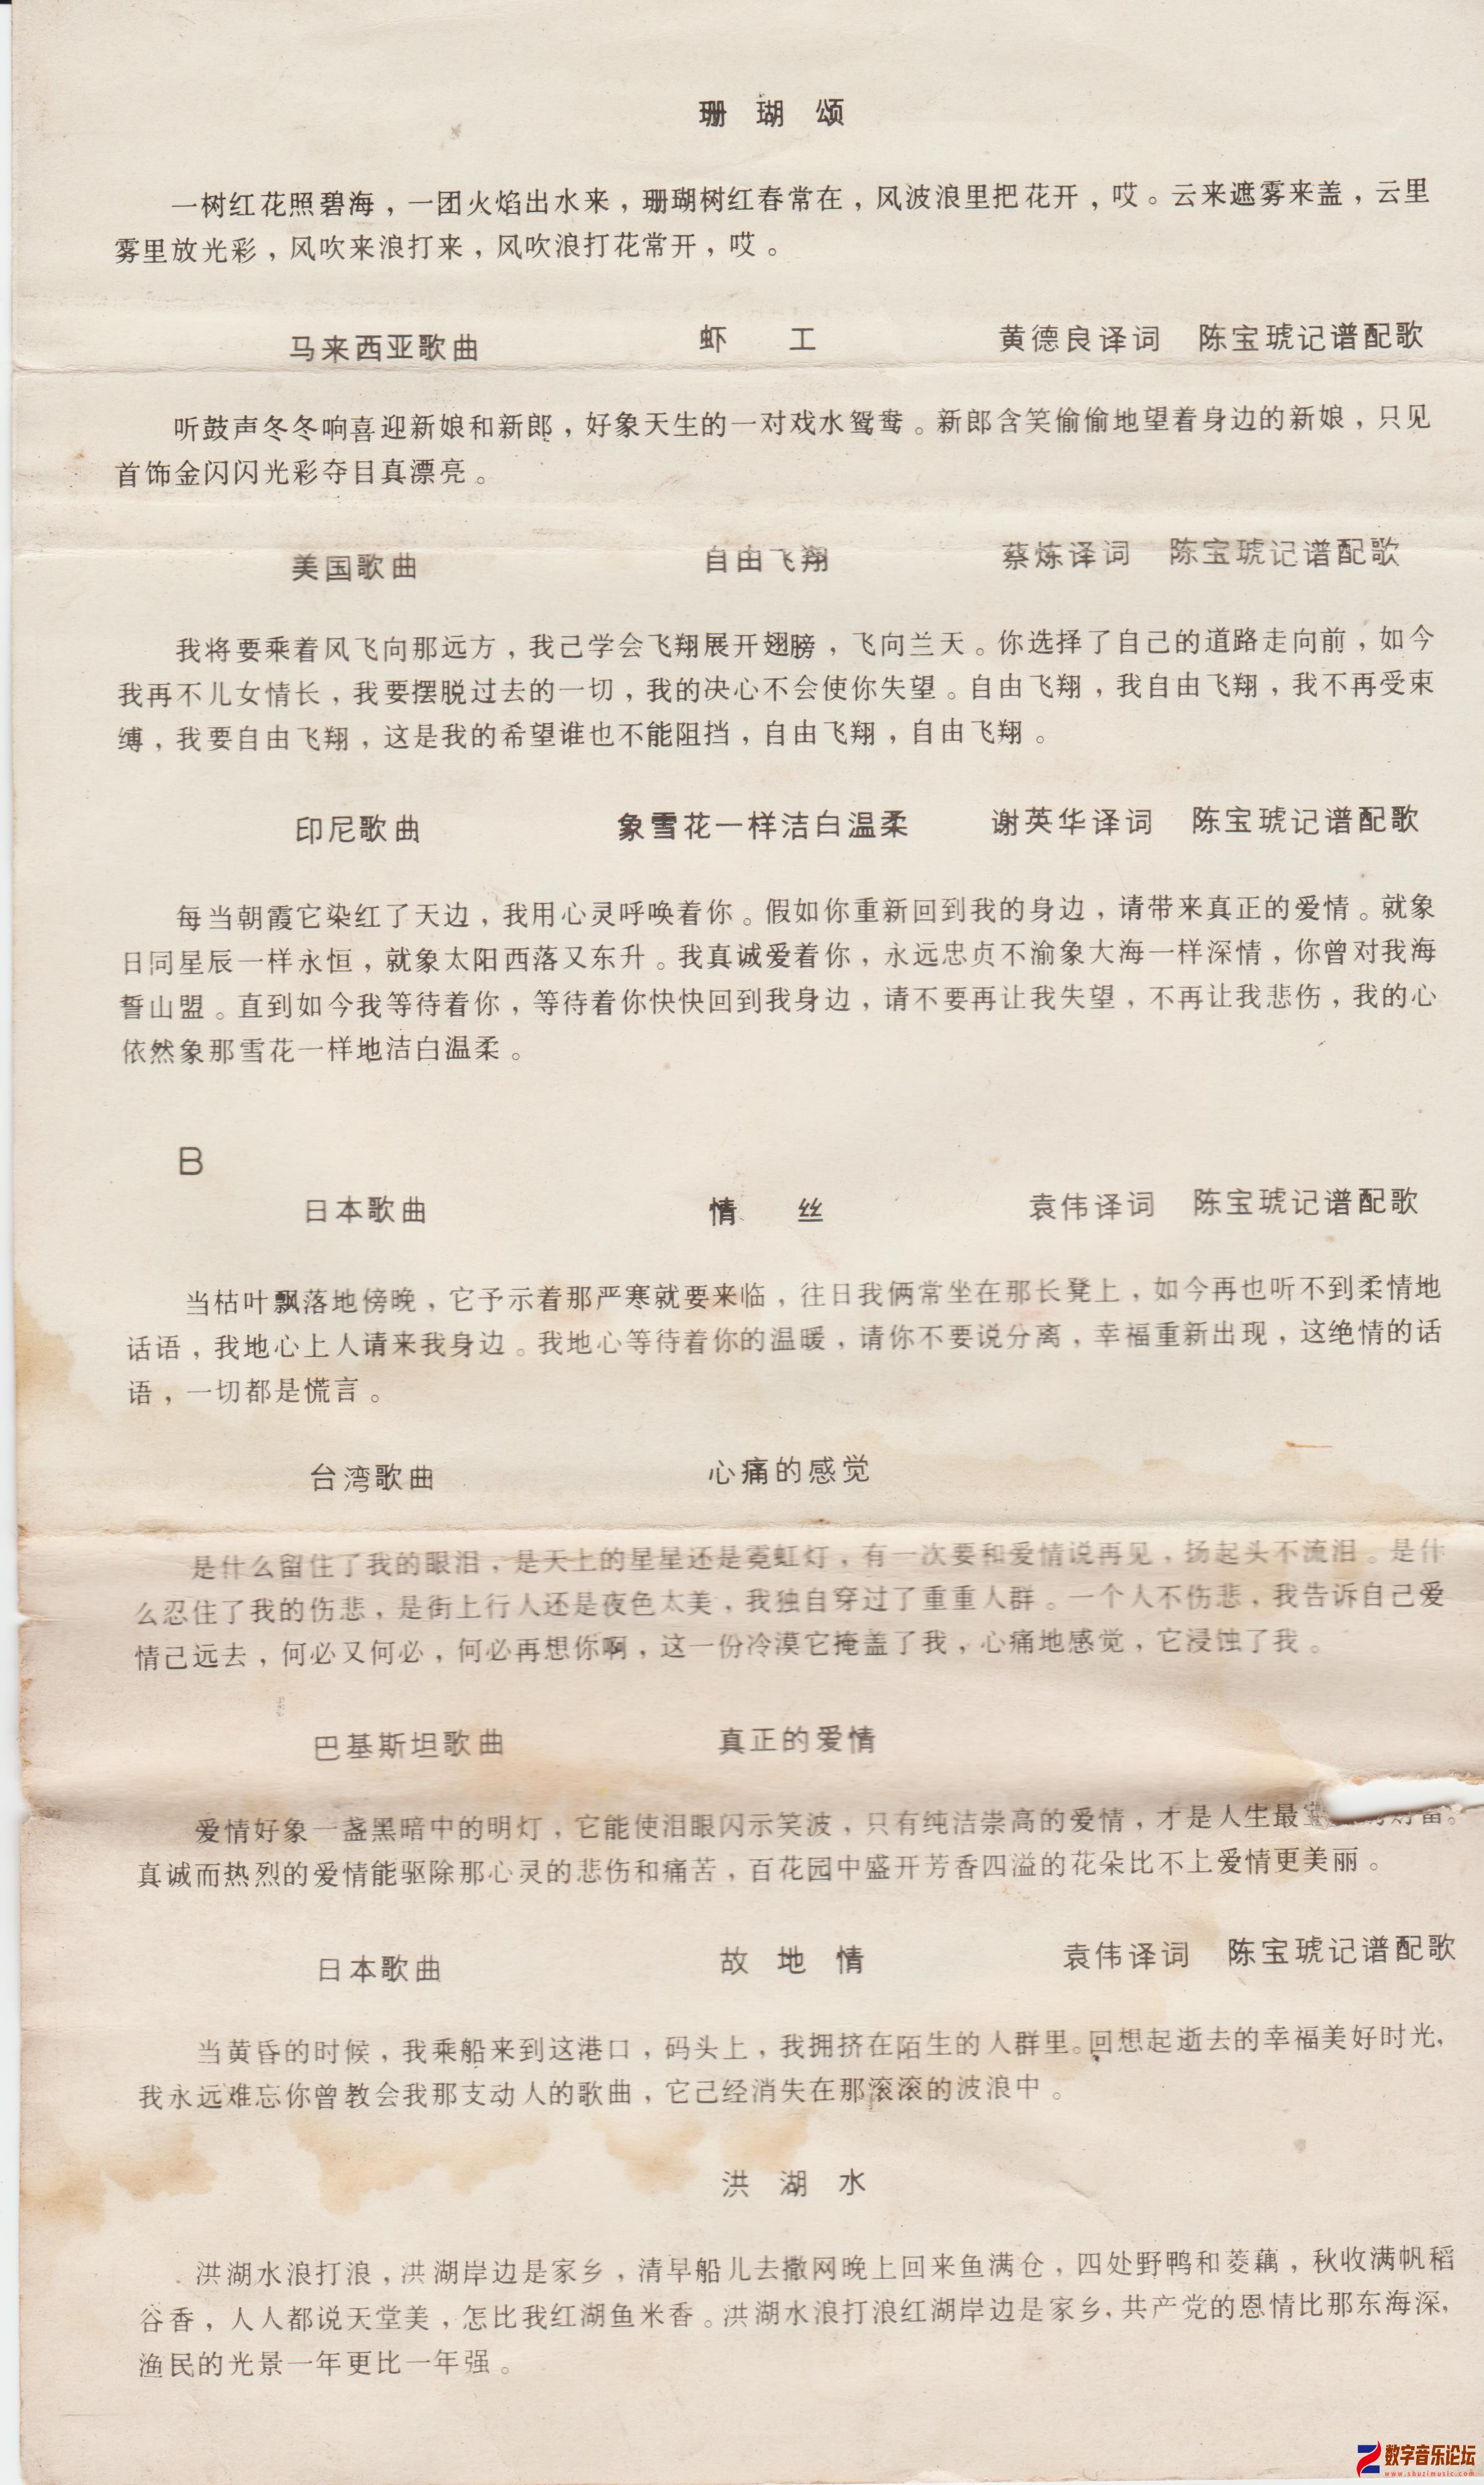 珊 瑚 颂
一树红花照碧海，一团火焰出水来，珊瑚树红春常在，风波浪里把花开，哎。云来遮雾来盖，云里
雾里放光彩，风吹来浪打来，风吹浪打花常开，哎。
马来西亚歌曲 虾 工 黄德良译词 陈宝琥记谱配歌
听鼓声冬冬响喜迎新娘和新郎，好象天生的一对戏水鸳鸯。新郎含笑偷偷地望着身边的新娘，只见
首饰金闪闪光彩夺目真漂亮。
美国歌曲 自由飞翔 蔡炼译词 陈宝琥记谱配歌
我将要乘着风飞向那远方，我己学会飞翔展开翅膀，飞向兰天。你选择了自己的道路走向前，如今
我再不儿女情长，我要摆脱过去的一切，我的决心不会使你失望。自由飞翔，我自由飞翔，我不再受束
缚，我要自由飞翔，这是我的希望谁也不能阻挡，自由飞翔，自由飞翔。
印尼歌曲 象雪花一样洁白温柔 谢英华译词 陈宝琥记谱配歌
每当朝霞它染红了天边，我用心灵呼唤着你。假如你重新回到我的身边，请带来真正的爱情。就象
日同星辰一样永恒，就象太阳西落又东升。我真诚爱着你，永远忠贞不渝象大海一样深情，你曾对我海
誓山盟。直到如今我等待着你，等待着你快快回到我身边，请不要再让我失望，不再让我悲伤，我的心
依然象那雪花一样地洁白温柔。
B
日本歌曲 情 丝 袁伟译词 陈宝琥记谱配歌
当枯叶飘落地傍晚，它予示着那严寒就要来临，往日我俩常坐在那长凳上，如今再也听不到柔情地
话语，我地心上人请来我身边。我地心等待着你的温暖，请你不要说分离，幸福重新出现，这绝情的话
语，一切都是慌言。
台湾歌曲 心痛的感觉
是什么留住了我的眼泪，是天上的星星还是霓虹灯，有一次要和爱情说再见，扬起头不流泪。是什
么忍住了我的伤悲，是街上行人还是夜色太美，我独自穿过了重重人群。一个人不伤悲，我告诉自己爱
情己远去，何必又何必，何必再想你啊，这一份冷漠它掩盖了我，心痛地感觉，它浸蚀了我。
巴基斯坦歌曲 真正的爱情
爱情好象一盏黑暗中的明灯，它能使泪眼闪示笑波，只有纯洁崇高的爱情，才是人生最
真诚而热烈的爱情能驱除那心灵的悲伤和痛苦，百花园中盛开芳香四溢的花朵比不上爱情更美丽。
日本歌曲 故 地 情 袁伟译词 陈宝琥记谱配歌
当黄昏的时候，我乘船来到这港口，码头上，我拥挤在陌生的人群里。回想起逝去的幸福美好时光，
我永远难忘你曾教会我那支动人的歌曲，它己经消失在那滚滚的波浪中。
洪 湖 水
洪湖水浪打浪，洪湖岸边是家乡，清早船儿去撒网晚上回来鱼满仓，四处野鸭和菱藕，秋收满帆稻
谷香，人人都说天堂美，怎比我红湖鱼米香。洪湖水浪打浪红湖岸边是家乡，共产党的恩情比那东海深，
渔民的光景一年更比一年强。
数字音乐论坛
www.shuzimusic.com